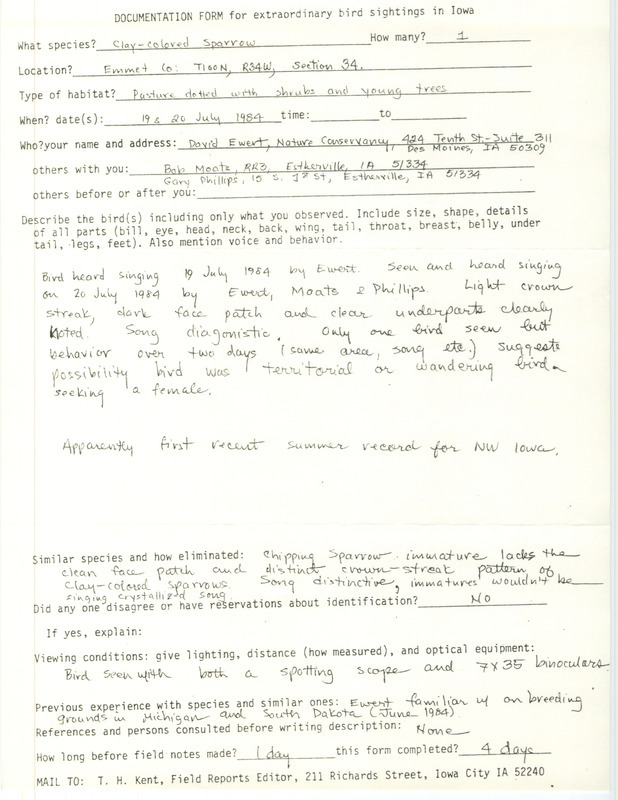 DOCUMENTATION FORM for extraordinary bird sightings in Iowa
What species? Clay-colored Sparrow How many? 1
Location? Emmet Co: T100N, R34W, Section 34.
Type of habitat? Pasture dotted with shrubs and young trees
When? date(s): 19 & 20 July 1984 time: to
Who?your name and address: David Ewert, Nature Conservancy, 424 Tenth St.-Suite 311
Des Moines, IA 50309
others with you: Bob Moats, RR3, Estherville, IA 51334
Gary Phillips, 15 S. 1st St, Estherville, IA 51334
others before or after you:
Describe the bird(s) including only what you observed. Include size, shape, details
of all parts (bill, eye, head, neck, back, wing, tail, throat, breast, belly, under
tail, legs, feet). Also mention voice and behavior.
Bird heard singing 19 July 1984 by Ewert. Seen and heard singing
on 20 July 1984 by Ewert, Moats & Phillips. Light crown
streak, dark face patch and clear underparts clearly
noted. Song diagonistic. Only one bird seen but
behavior over two days (same area, song etc.) suggests
possibility bird was territorial or wandering bird
seeking a female.
Apparently first recent summer record for NW Iowa.
Similar species and how eliminated: Chipping Sparrow immature lacks the
clean face patch and distinct crown-streak pattern of
Clay-colored Sparrows. Song distinctive, immatures wouldn't be
singing crystallized song.
Did any one disagree or have reservations about identification? No
If yes, explain:
Viewing conditions: give lighting, distance (how measured), and optical equipment:
Bird seen with both a spotting scope and 7x35 binoculars.
Previous experience with species and similar ones: Ewert familiar w/ on breeding
grounds in Michigan and South Dakota (June 1984).
References and persons consulted before writing description: None
How long before field notes made? 1 day this form completed? 4 days
MAIL TO: T. H. Kent, Field Reports Editor, 211 Richards Street, Iowa City IA 52240